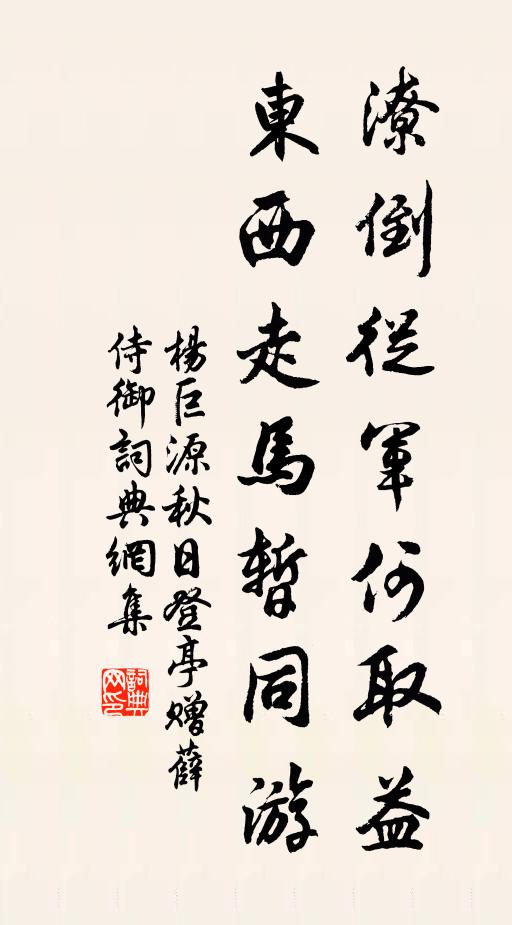 潦倒從軍何取益
東西走馬暫同游
楊巨源秋日登亭贈薛
侍御詞典網集
詞典網印